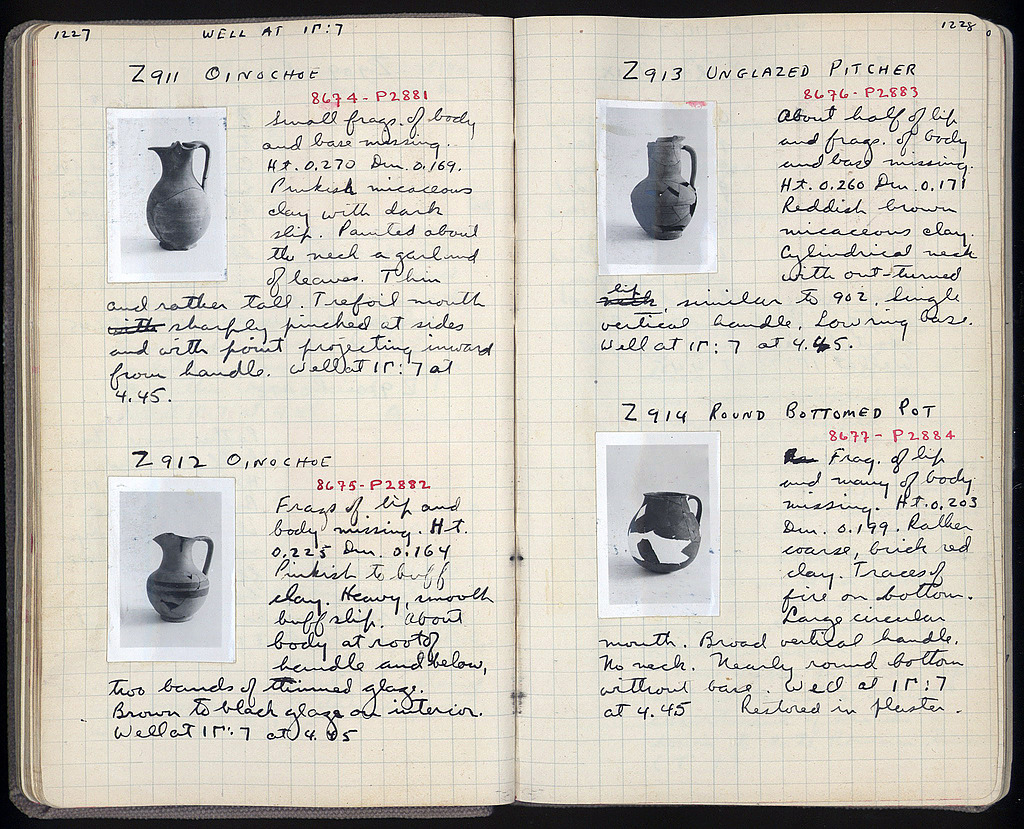 1227 WELL AT ΙΓ:7
Z911 OINOCHOE
8674-P2881
Small frags. of body
and base missing.
Ht. 0.270 Dm. 0.169.
Pinkish micaceous
clay with dark
slip. Painted about
the neck a garland
of leaves. Thin
and rather tall. Trefoil mouth
with sharply pinched at sides
and with point projecting inward
from handle. Well at ΙΓ:7 at
4.45.
Z912 OINOCHOE
8675-P2882
Frags of lip and
body missing. Ht.
0.225 Dm. 0.164
Pinkish to buff
clay. Heavy, smooth
buff slip. About
body at root of
handle and below,
two bands of thinned glaze.
Brown to black glaze on interior.
Well at ΙΓ:7 at 4.45
1228
Z913 UNGLAZED PITCHER
8676-P2883
About half of lip
and frags. of body
and base missing.
Ht. 0.260 Dm. 0.171
Reddish brown
micaceous clay.
Cylindrical neck
with out-turned
lip
neck, similar to 902. Single
vertical handle. Low ring base.
Well at ΙΓ:7 at 4.45.
Z914 ROUND BOTTOMED POT
8677-P2884
Frag. of lip
and many of body
missing. Ht. 0.203
Dm. 0.199. Rather
coarse, brick red
clay. Traces of
fire on bottom.
Large circular
mouth. Broad vertical handle.
No neck. Nearly round bottom
without base. Well at ΙΓ:7
at 4.45 Restored in plaster.